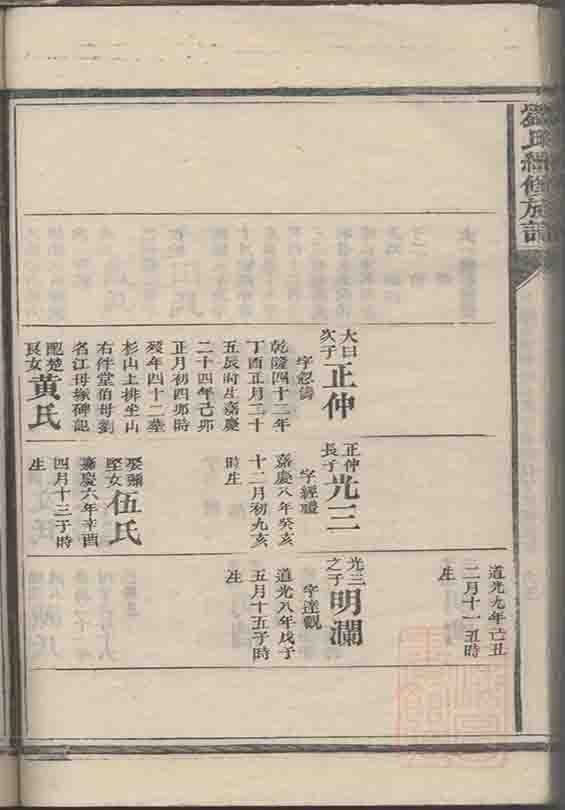 劉氏續修族譜
大曰次子正仲
字忍濤
乾隆四十二年
丁酉正月二十
五辰時生嘉慶
二十四年己卯
正月初四卯時
歿年四十二葬
杉山上排坐山
右伴堂伯母劉
名江母塚碑記
配楚良女黃氏
正仲長子光三
字經禮
嘉慶八年癸亥
十二月初九亥
時生
娶彌堅女伍氏
嘉慶六年辛酉
四月十三子時
生
道光九年己丑
二月十一丑時
生
光三之子明瀾
字達觀
道光八年戊子
五月十五子時
生